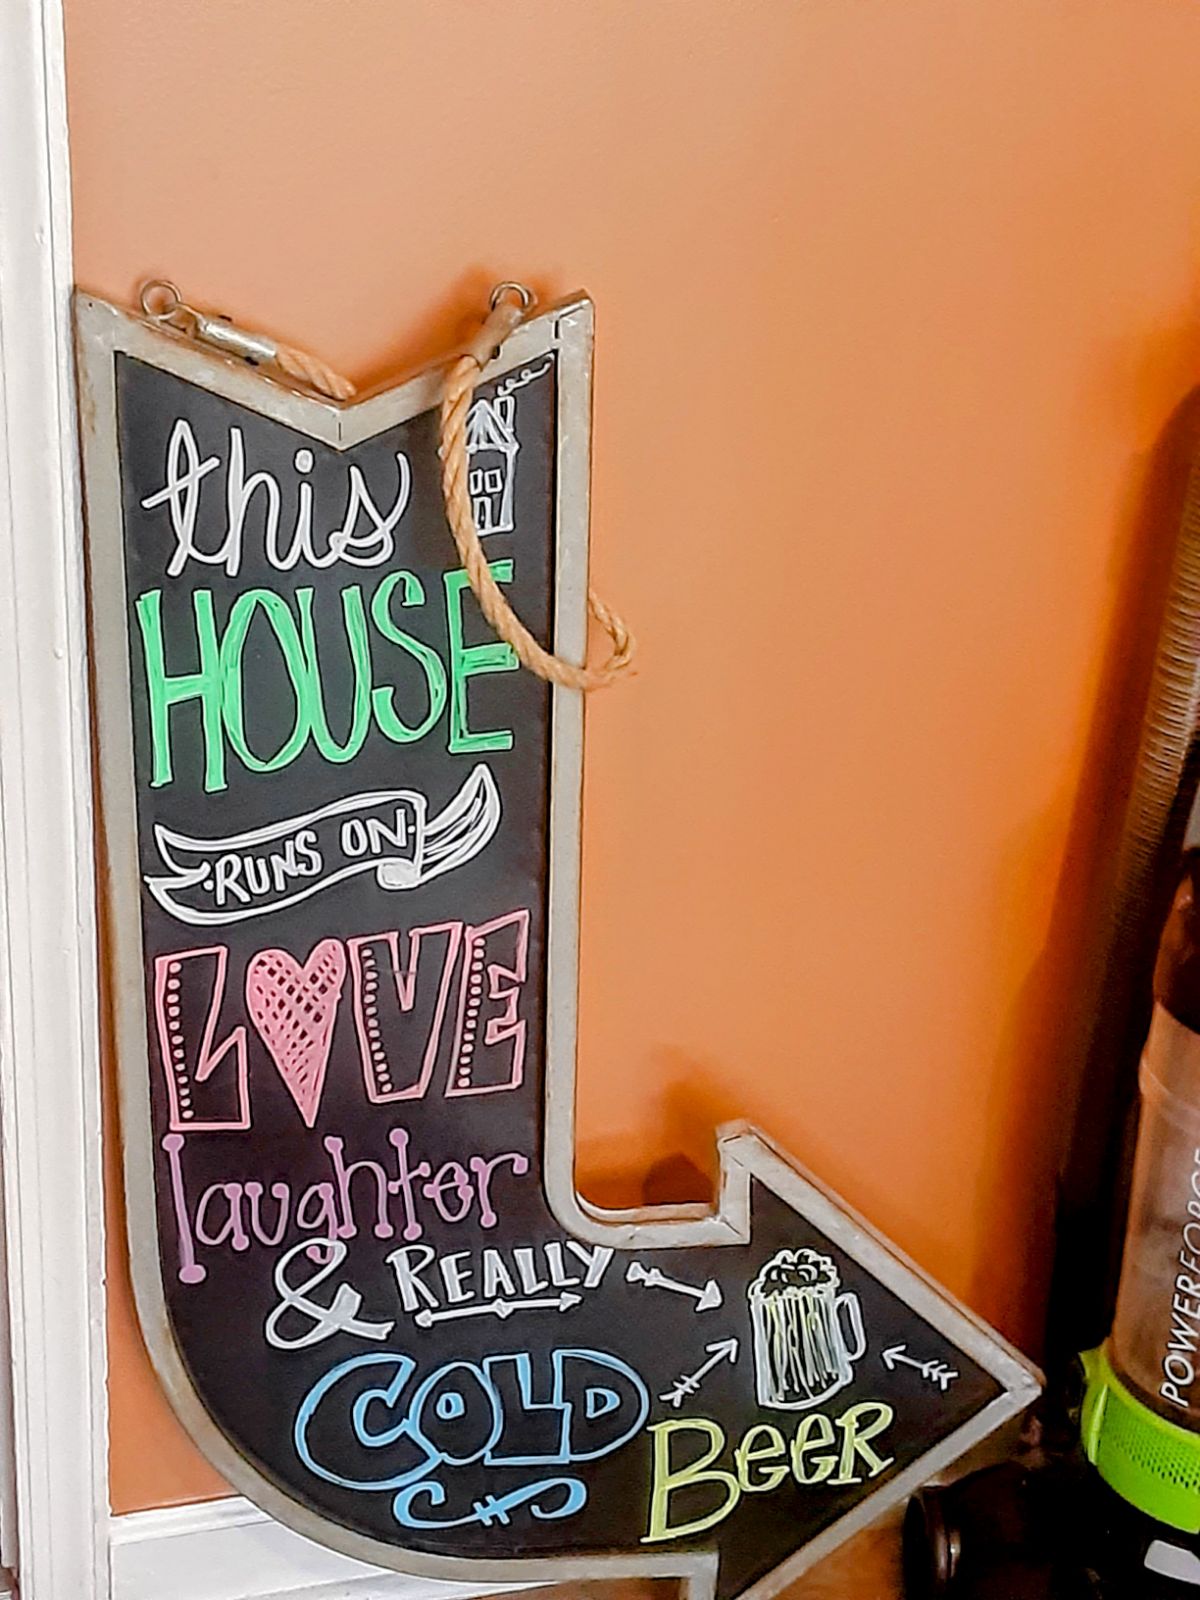 this
HOUSE
RUNS ON
LOVE
laughter
& REALLY
COLD
BEER
POWERFORCE